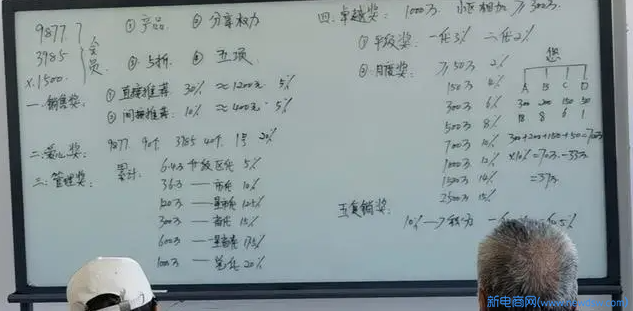 9877 ① 产品 ② 分享权力
3985 会员
x.1500. ③ 5折 ④ 五项
一.销售奖: ① 直接推荐 30% ≈1200元 5%
② 间接推荐 10% ≈400元 5%
9877 90个 3985 40个 1号 20%
二.爱心奖:
三.管理奖: 累计: 6.4万 5%
36万 — 市代 10%
120万 — 12.5%
300万 — 省代 15%
600万 — 17.5%
1000万 — 20%
四.卓越奖: 1000万 小区相加 ≥300万
① 平级奖: 一代3% 二代2%
② 月度奖: ≥50万 2%
150万 4%
300万 6%
500万 8%
700万 10%
1000万 12%
1500万 14%
2500万 15%
您
A B C D
300 200 150 50
18 8 6 1
300+200+150+50=700万
x10%=70万-33万
=37万
五.复销奖:
10%
新电商网